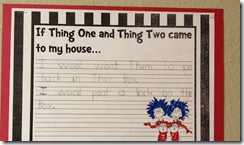 If Thing One and Thing Two came
to my house...
I woud want Them to go
back in Ther Box.
I woud poot a lock on the
Box.